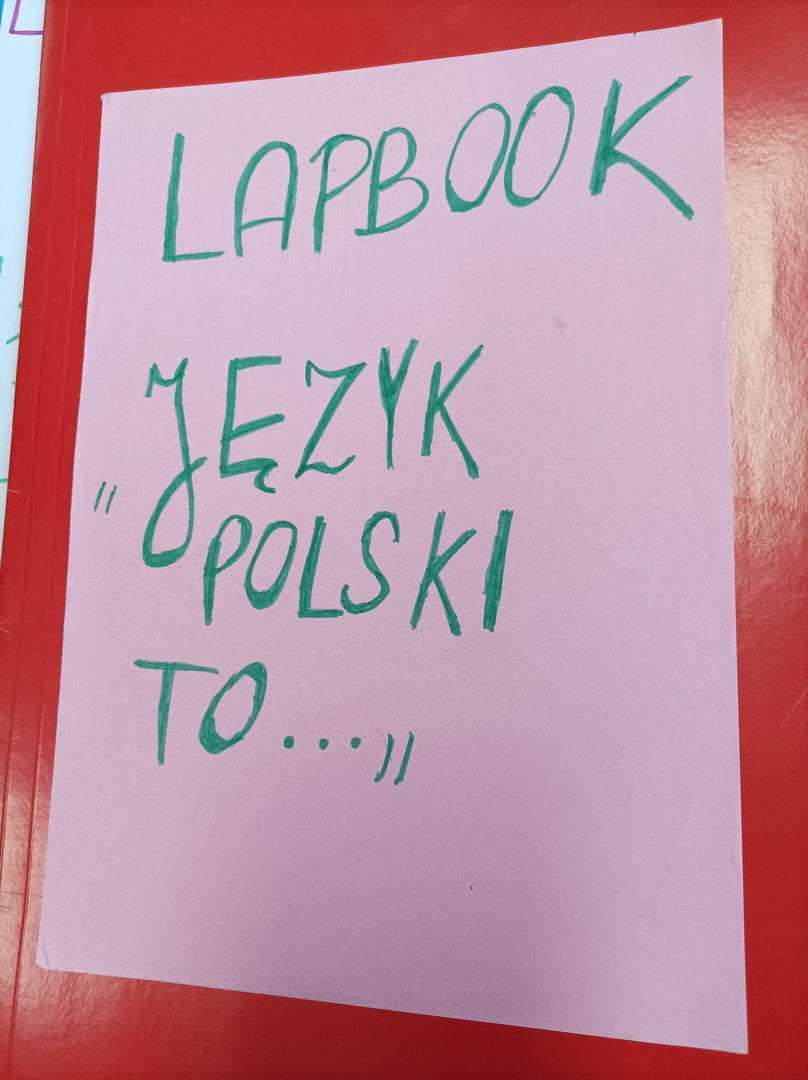 LAPBOOK
„JĘZYK
POLSKI
TO...„